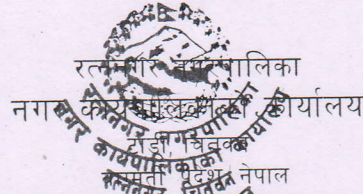 रत्ननगर नगरपालिका
नगर कार्यपालिकाको कार्यालय
टाँडी, चितवन
बागमती प्रदेश, नेपाल